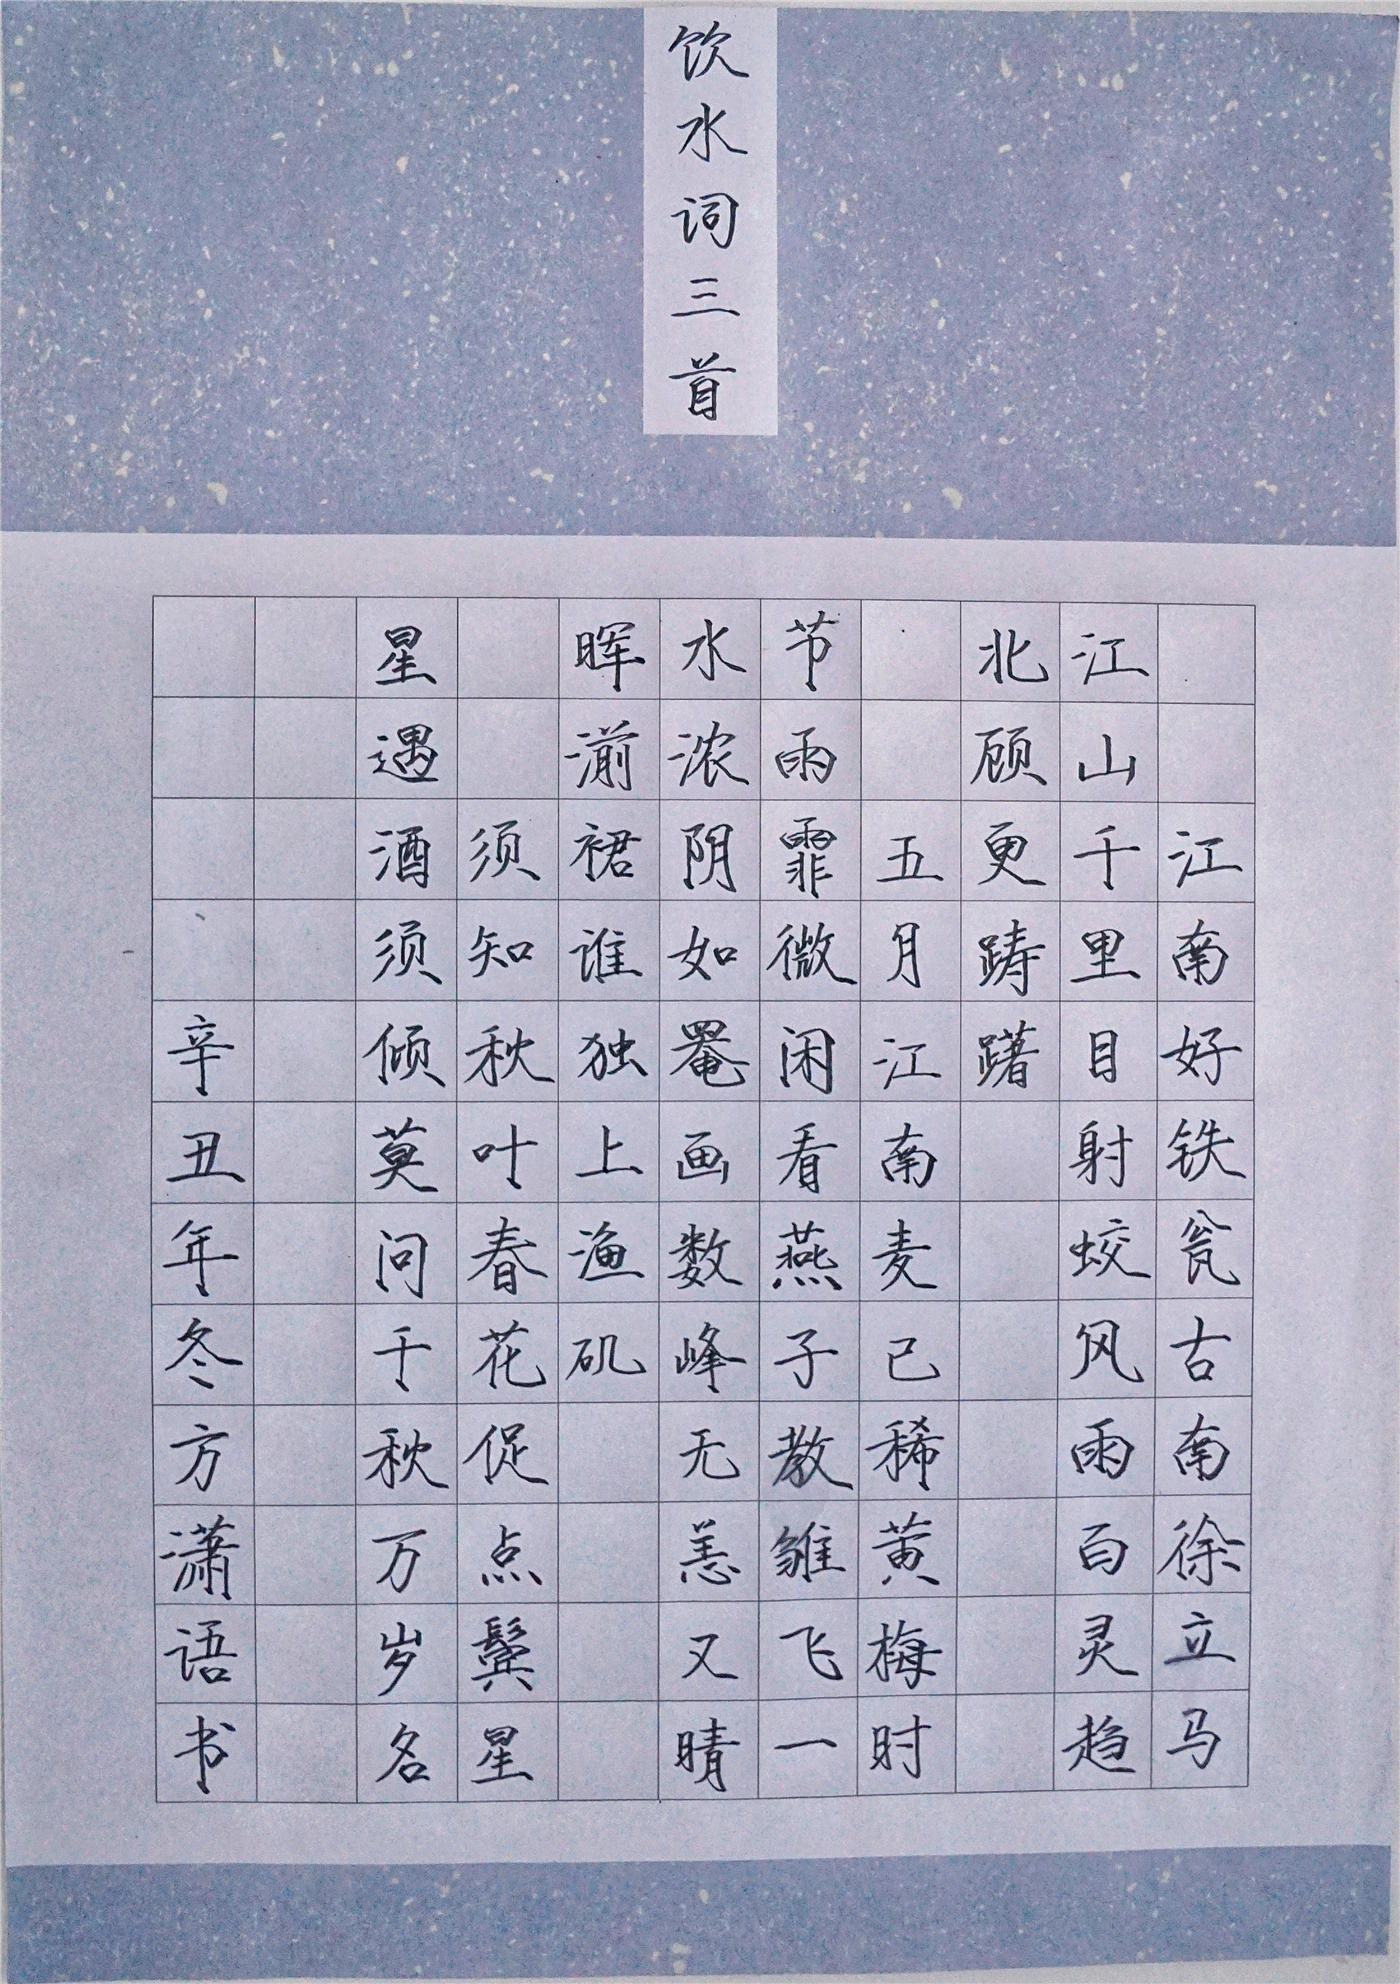 饮水词三首
江南好铁瓮古南徐立马
江山千里目射蛟风雨百灵趋
北顾更踌躇
五月江南麦已稀黄梅时
节雨霏微闲看燕子教雏飞一
水浓阴如罨画数峰无恙又晴
晖湔裙谁独上渔矶
须知秋叶春花促点鬓星
星遇酒须倾莫问千秋万岁名
辛丑年冬方潇语书